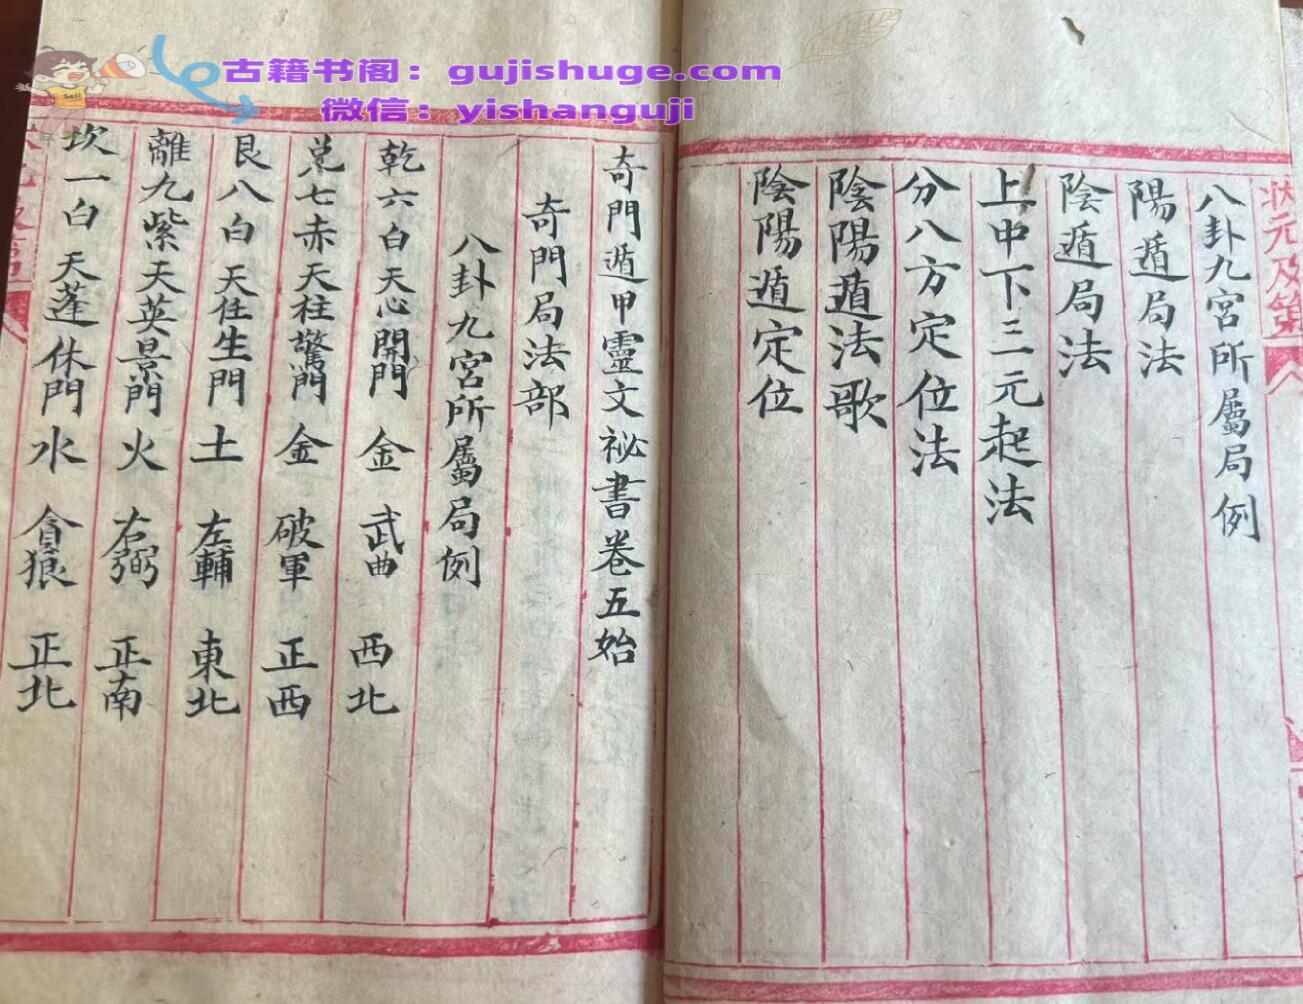 古籍书阁：gujishuge.com
微信：yishanguji
状元及第
八卦九宮所屬局例
陽遁局法
陰遁局法
上中下三元起法
分八方定位法
陰陽遁法歌
陰陽遁定位
奇門遁甲靈文祕書卷五始
奇門局法部
八卦九宮所屬局例
乾六白天心開門 金 武曲 西北
兌七赤天柱驚門 金 破軍 正西
艮八白天任生門 土 左輔 東北
離九紫天英景門 火 右弼 正南
坎一白天蓬休門 水 貪狼 正北